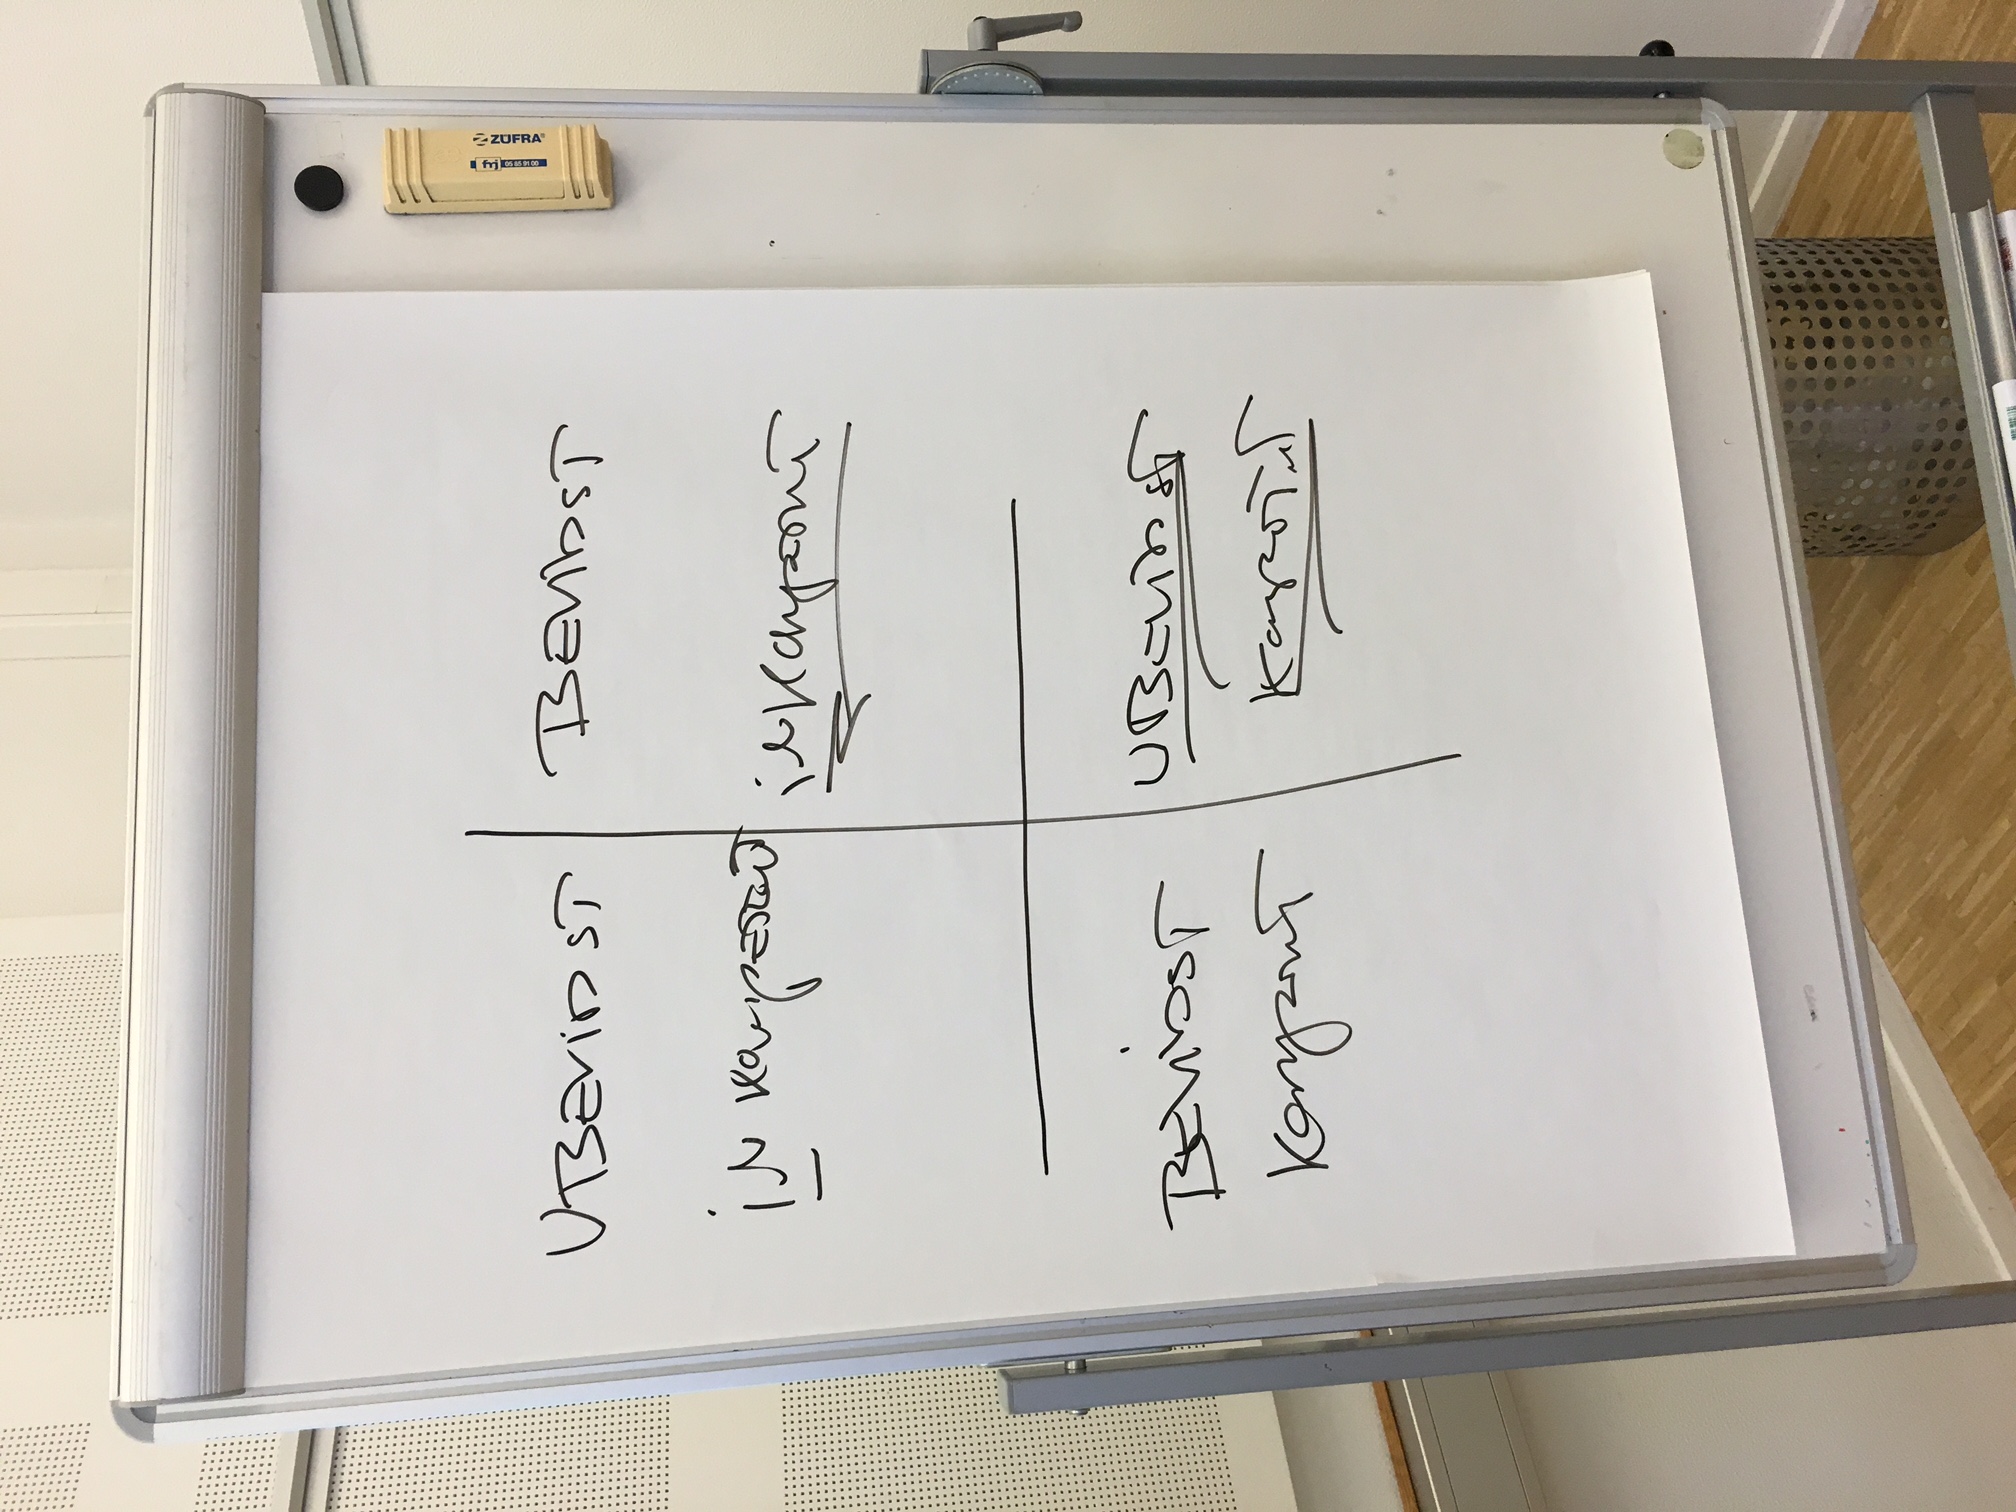 ZÜFRA®
frj 05 65 91 00
UBEVIDST
iN Kompetent
BEVIDST
iNKompetent
BEVIDST
Kompetent
UBEVIDST
Kompetent